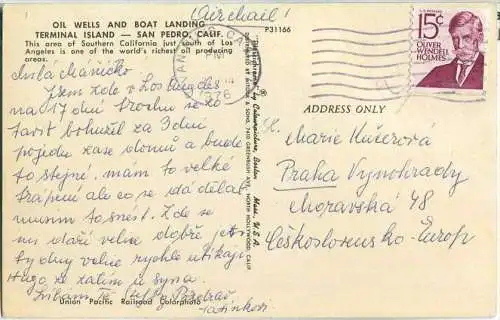 Airmail!
OIL WELLS AND BOAT LANDING
TERMINAL ISLAND — SAN PEDRO, CALIF.
This area of Southern California just south of Los
Angeles is one of the world's richest oil producing
areas.
P31166
U.S. POSTAGE
15¢
OLIVER
WENDELL
HOLMES
PM
1978
Milá Máničko
Jsem zde v Los Angeles
na 17 dní trochu se zo
tavit bohužel za 3 dni
pojedu zase domů a bude
to stejné, mám to velké
trápení ale co se dá dělat
musím to snést. Zde se
mi daří velice dobře jen
ty dny velice rychle utíkají
Hugo ze zatím u syna.
Líbám Tě
Pozdrav
Tatínkovi
Union Pacific Railroad Colorphoto
Plastichrome by Colourpicture, Boston, Mass. U.S.A.
DISTRIBUTED BY MITOCK & SONS, 7410 GREENBUSH AVE., NORTH HOLLYWOOD, CALIF.
ADDRESS ONLY
Marie Kučerová
Praha Vynohrady
Moravská 48
Československo-Europ